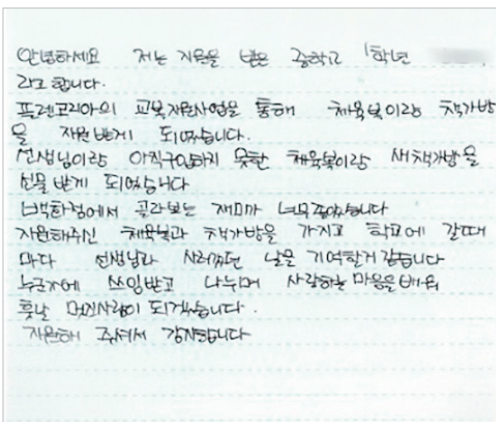 안녕하세요 저는 지원을 받은 중학교 1학년
라고 합니다.
프렌코리아의 교복지원사업을 통해 체육복이랑 책가방
을 지원받게 되었습니다.
선생님이랑 아직구입하지 못한 체육복이랑 새책가방을
선물받게 되었습니다
백화점에서 골라보는 재미가 너무좋았습니다
지원해주신 체육복과 책가방을 가지고 학교에 갈때
마다 선생님과 날을 기억할거 같습니다
누군가에 쓰임받고 나누며 사랑하는 마음을 배워
훗날 멋진사람이 되겠습니다.
지원해 주셔서 감사합니다